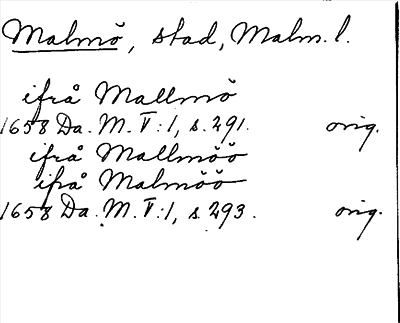 Malmö, stad, Malm. l.
ifrå Mallmö
1658 Da. M. V:1, s. 291. orig.
ifrå Mallmöö
ifrå Malmöö
1658 Da. M. V:1, s. 293. orig.